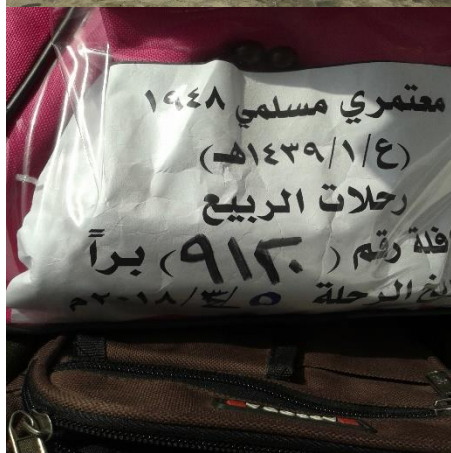 معتمري مسلمي ١٩٤٨
(ع/١/١٤٣٩هـ)
رحلات الربيع
رقم (٩١٢) براً
الرحلة ٥/٣/٢٠١٨م